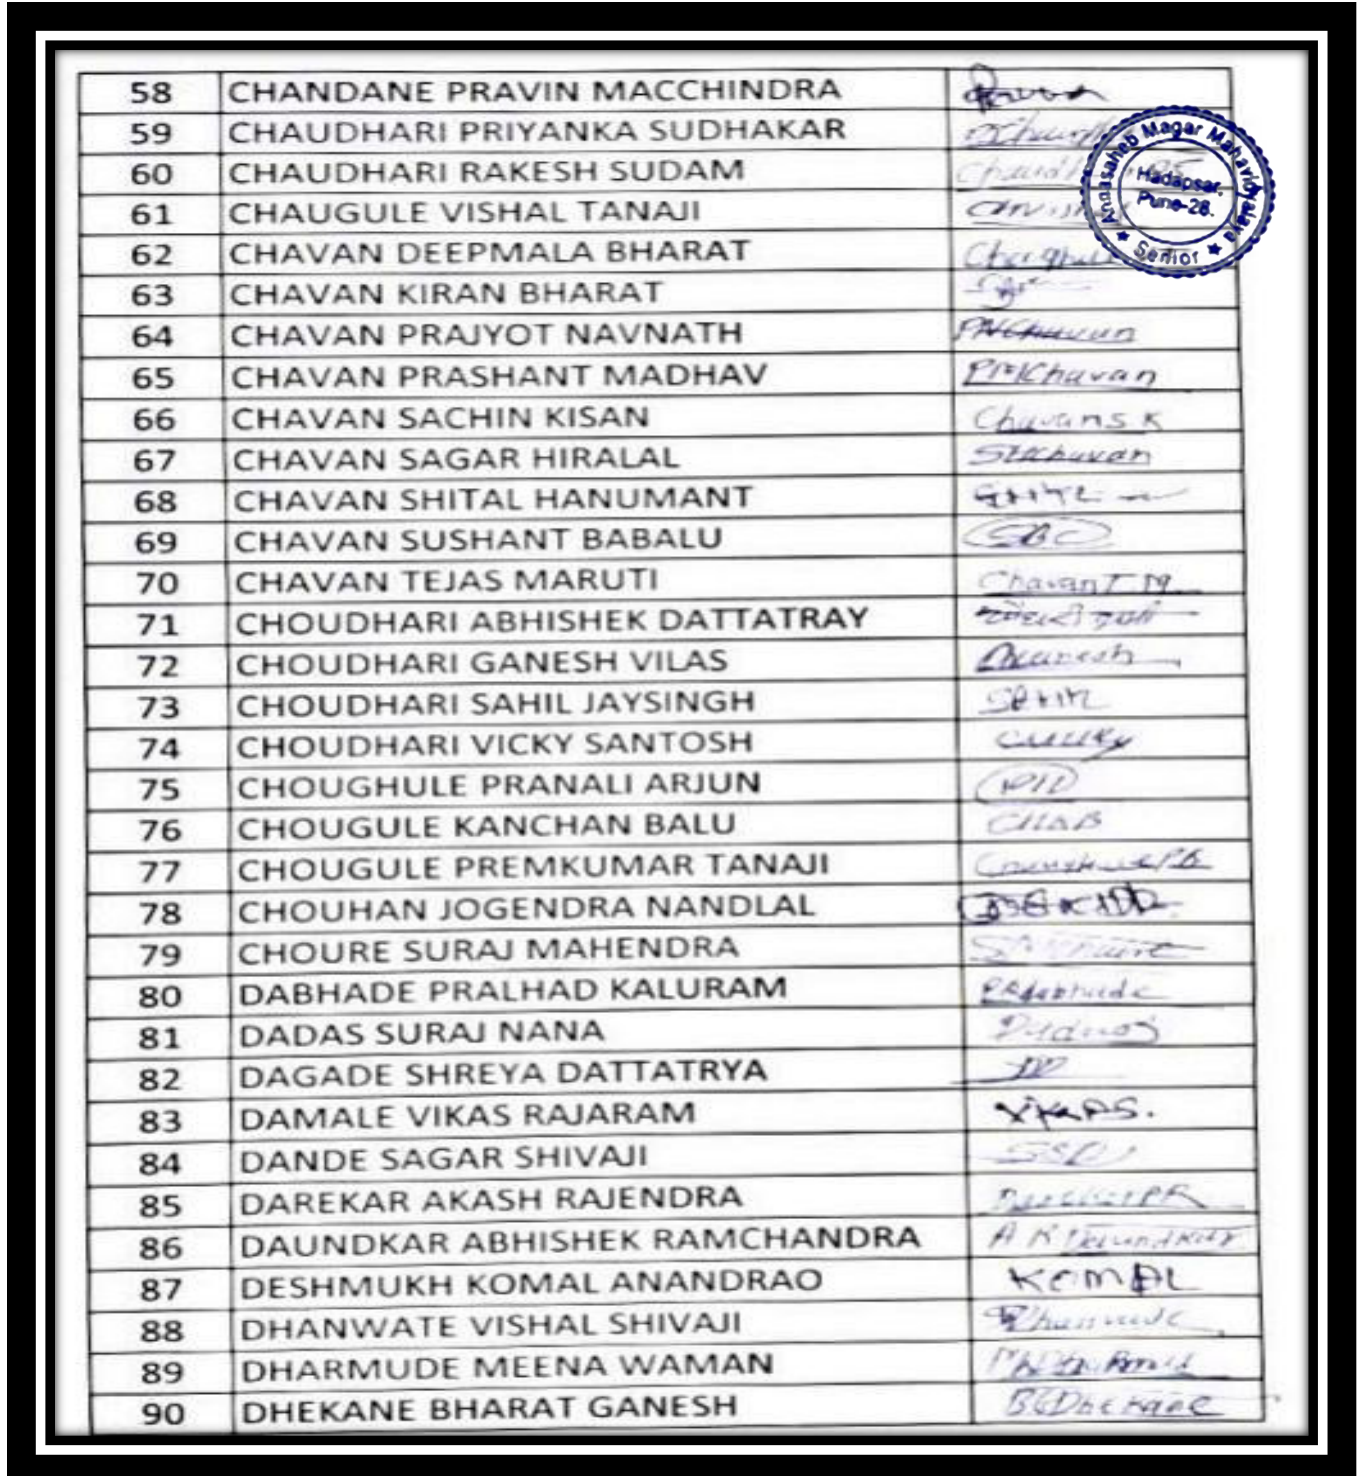 58 CHANDANE PRAVIN MACCHINDRA
59 CHAUDHARI PRIYANKA SUDHAKAR
60 CHAUDHARI RAKESH SUDAM
61 CHAUGULE VISHAL TANAJI
62 CHAVAN DEEPMALA BHARAT
63 CHAVAN KIRAN BHARAT
64 CHAVAN PRAJYOT NAVNATH PNChavan
65 CHAVAN PRASHANT MADHAV PMChavan
66 CHAVAN SACHIN KISAN Chavan S K
67 CHAVAN SAGAR HIRALAL
68 CHAVAN SHITAL HANUMANT
69 CHAVAN SUSHANT BABALU SBC
70 CHAVAN TEJAS MARUTI Chavan T M
71 CHOUDHARI ABHISHEK DATTATRAY
72 CHOUDHARI GANESH VILAS
73 CHOUDHARI SAHIL JAYSINGH
74 CHOUDHARI VICKY SANTOSH
75 CHOUGHULE PRANALI ARJUN
76 CHOUGULE KANCHAN BALU
77 CHOUGULE PREMKUMAR TANAJI
78 CHOUHAN JOGENDRA NANDLAL
79 CHOURE SURAJ MAHENDRA
80 DABHADE PRALHAD KALURAM
81 DADAS SURAJ NANA
82 DAGADE SHREYA DATTATRYA
83 DAMALE VIKAS RAJARAM
84 DANDE SAGAR SHIVAJI SSD
85 DAREKAR AKASH RAJENDRA
86 DAUNDKAR ABHISHEK RAMCHANDRA A R Daundkar
87 DESHMUKH KOMAL ANANDRAO KOMAL
88 DHANWATE VISHAL SHIVAJI
89 DHARMUDE MEENA WAMAN
90 DHEKANE BHARAT GANESH BGDhekane
Annasaheb Magar Mahavidyalaya
Hadapsar,
Pune-28.
★ Senior ★